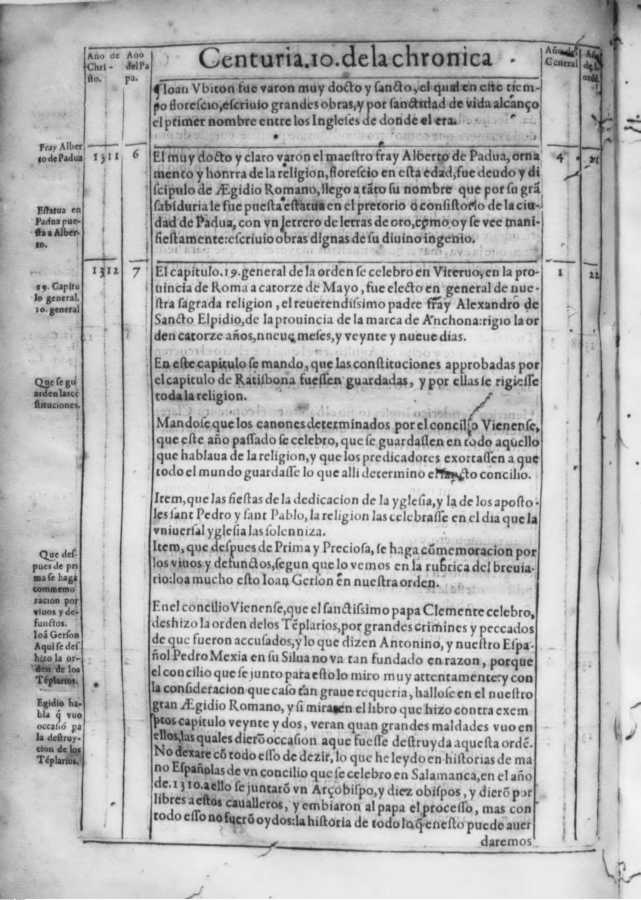 Año de
Chri-
sto.
Año
del Pa
pa.
Centuria.10. de la chronica
Año del
General
Año
de la
ordē.
¶ Ioan Vbiton fue varon muy docto y sancto, el qual en este tiem-
po florescio, escriuio grandes obras, y por sanctidad de vida alcanço
el primer nombre entre los Ingleses de donde el era.
Fray Alber
to de Padua
1311
6
El muy docto y claro varon el maestro fray Alberto de Padua, orna
mento y honrra de la religion, florescio en esta edad, fue deudo y di
scipulo de Ægidio Romano, llego a tāto su nombre que por su grā
sabiduria le fue puesta estatua en el pretorio o consistorio de la ciu-
dad de Padua, con vn letrero de letras de oro, como oy se vee mani-
fiestamente: escriuio obras dignas de su diuino ingenio.
4
21
Estatua en
Padua pue-
sta a Alber-
to.
1312
7
El capitulo.19.general de la orden se celebro en Viteruo, en la pro-
uincia de Roma a catorze de Mayo, fue electo en general de nue-
stra sagrada religion, el reuerendissimo padre fray Alexandro de
Sancto Elpidio, de la prouincia de la marca de Anchona: rigio la or
den catorze años, nueue meses, y veynte y nueue dias.
1
22
19. Capitu
lo general.
10. general
En este capitulo se mando, que las constituciones approbadas por
el capitulo de Ratisbona fuessen guardadas, y por ellas se rigiesse
toda la religion.
Que se gu
arden las cō
stituciones.
Mandose que los canones determinados por el concilio Vienense,
que este año passado se celebro, que se guardassen en todo aquello
que hablaua de la religion, y que los predicadores exortassen a que
todo el mundo guardasse lo que alli determino el sancto concilio.
Item, que las fiestas de la dedicacion de la yglesia, y la de los aposto-
les sant Pedro y sant Pablo, la religion las celebrasse en el dia que la
vniuersal yglesia las solenniza.
Item, que despues de Prima y Preciosa, se haga cōmemoracion por
los viuos y defunctos, segun que lo vemos en la rubrica del breuia-
rio: loa mucho esto Ioan Gerson en nuestra orden.
Que des-
pues de pri
ma se haga
commemo
racion por
viuos y de-
functos.
Ioā Gerson
Aqui se des
hizo la or-
den de los
Tēplarios.
En el concilio Vienense, que el sanctissimo papa Clemente celebro,
deshizo la orden delos Tēplarios, por grandes crimines y peccados
de que fueron accusados, y lo que dizen Antonino, y nuestro Espa-
ñol Pedro Mexia en su Silua no va tan fundado en razon, porque
el concilio que se junto para esto lo miro muy attentamente y con
la consideracion que caso tan graue requeria, hallose en el nuestro
gran Ægidio Romano, y si miran en el libro que hizo contra exem
ptos capitulo veynte y dos, veran quan grandes maldades vuo en
ellos, las quales dierō occasion a que fuesse destruyda aquesta ordē.
No dexare cō todo esso de dezir, lo que he leydo en historias de ma
no Españolas de vn concilio que se celebro en Salamanca, en el año
de.1310. a ello se juntarō vn Arçobispo, y diez obispos, y dierō por
libres a estos caualleros, y embiaron al papa el processo, mas con
todo esso no fuerō oydos: la historia de todo lo q̄ en esto puede auer
daremos
Egidio ha-
bla q̄ vuo
occasiō pa
la destruy-
cion de los
Tēplarios.